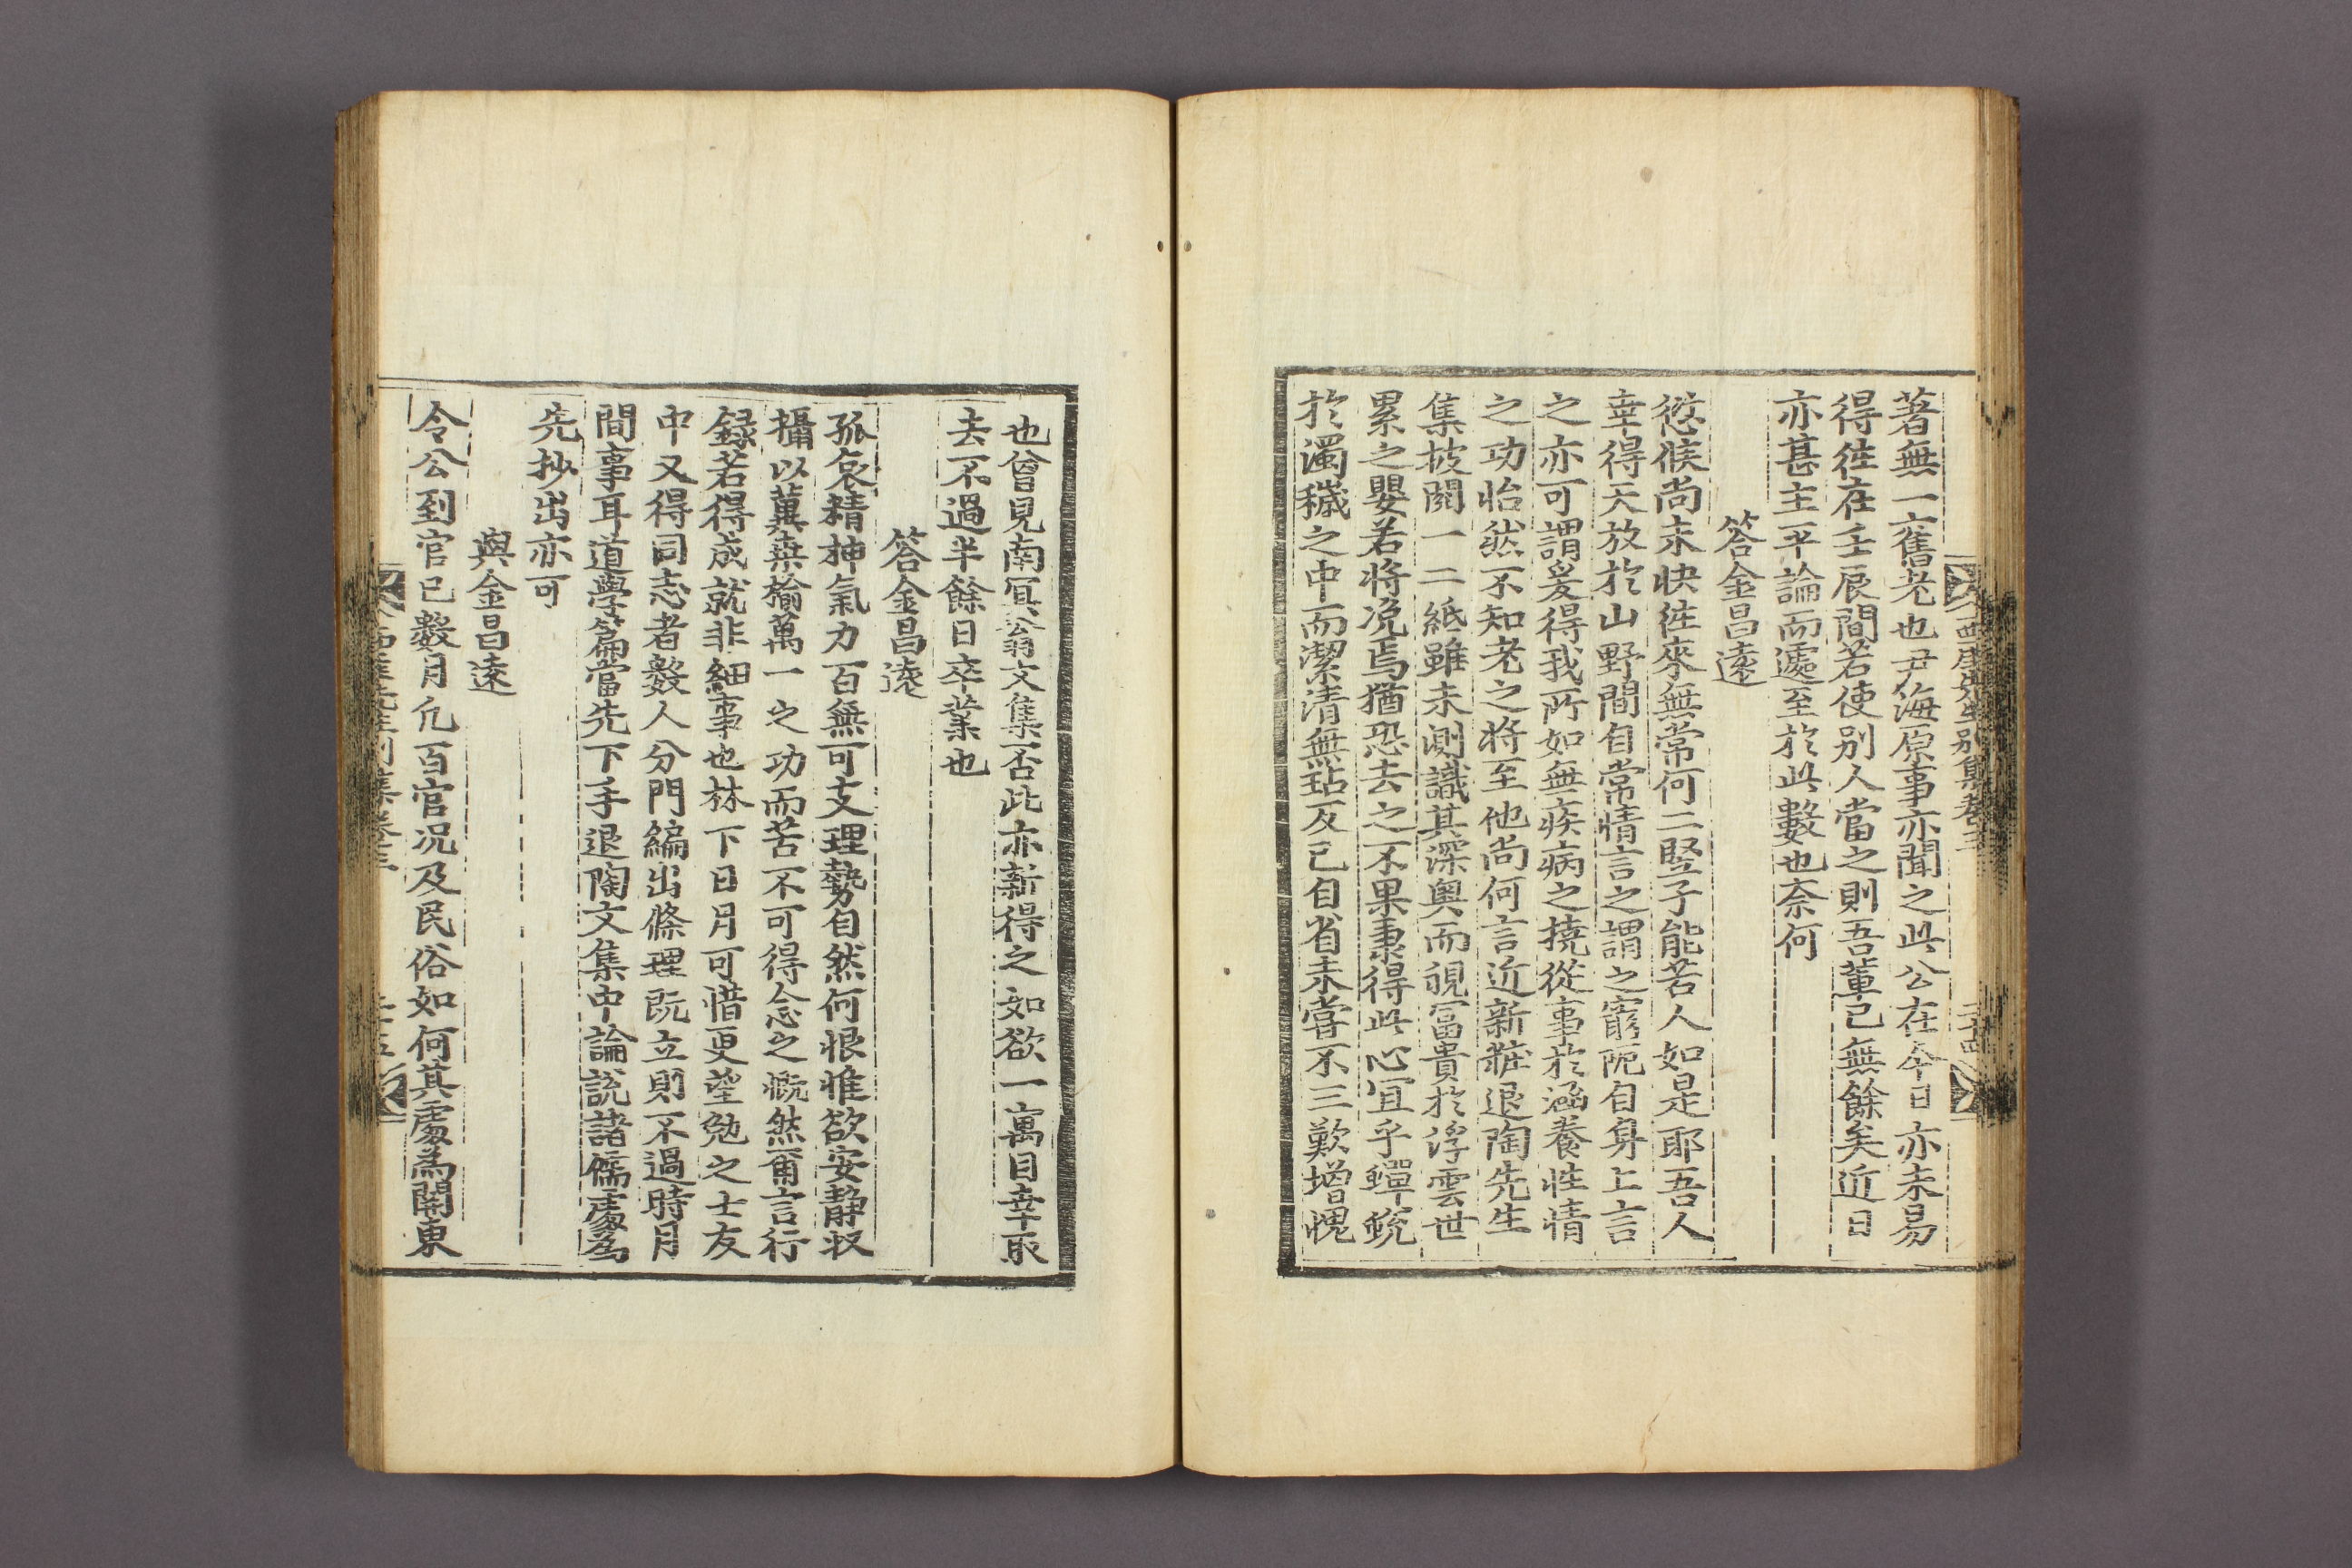 西厓先生別集卷三
二十四
著無一舊老也尹海原事亦聞之此公在今日亦未易
得徃在壬辰間若使別人當之則吾輩已無餘矣近日
亦甚主平論而遽至於此數也奈何
答金昌遠
愆候尚未快徃來無常何二竪子能若人如是耶吾人
幸得天放於山野間自常情言之謂之窮阨自身上言
之亦可謂爰得我所如無疾病之撓從事於涵養性情
之功怡然不知老之將至他尚何言近新糚退陶先生
集披閱一二紙雖未測識其深奧而視冨貴於浮雲世
累之嬰若將凂焉猶恐去之不果秉得此心宜乎蟬蛻
於濁穢之中而潔清無玷反己自省未嘗不三歎增愧
也曾見南冥翁文集否此亦新得之如欲一寓目幸取
去不過半餘日卒業也
答金昌遠
孤哀精神氣力百無可支理勢自然何恨惟欲安靜収
攝以冀桑榆萬一之功而苦不可得念之慨然爾言行
録若得成就非細事也林下日月可惜更望勉之士友
中又得同志者數人分門編出條理旣立則不過時月
間事耳道學篇當先下手退陶文集中論說諸儒處爲
先抄出亦可
與金昌遠
令公到官已數月凢百官况及民俗如何其處為關東
西厓先生別集卷三
二十五